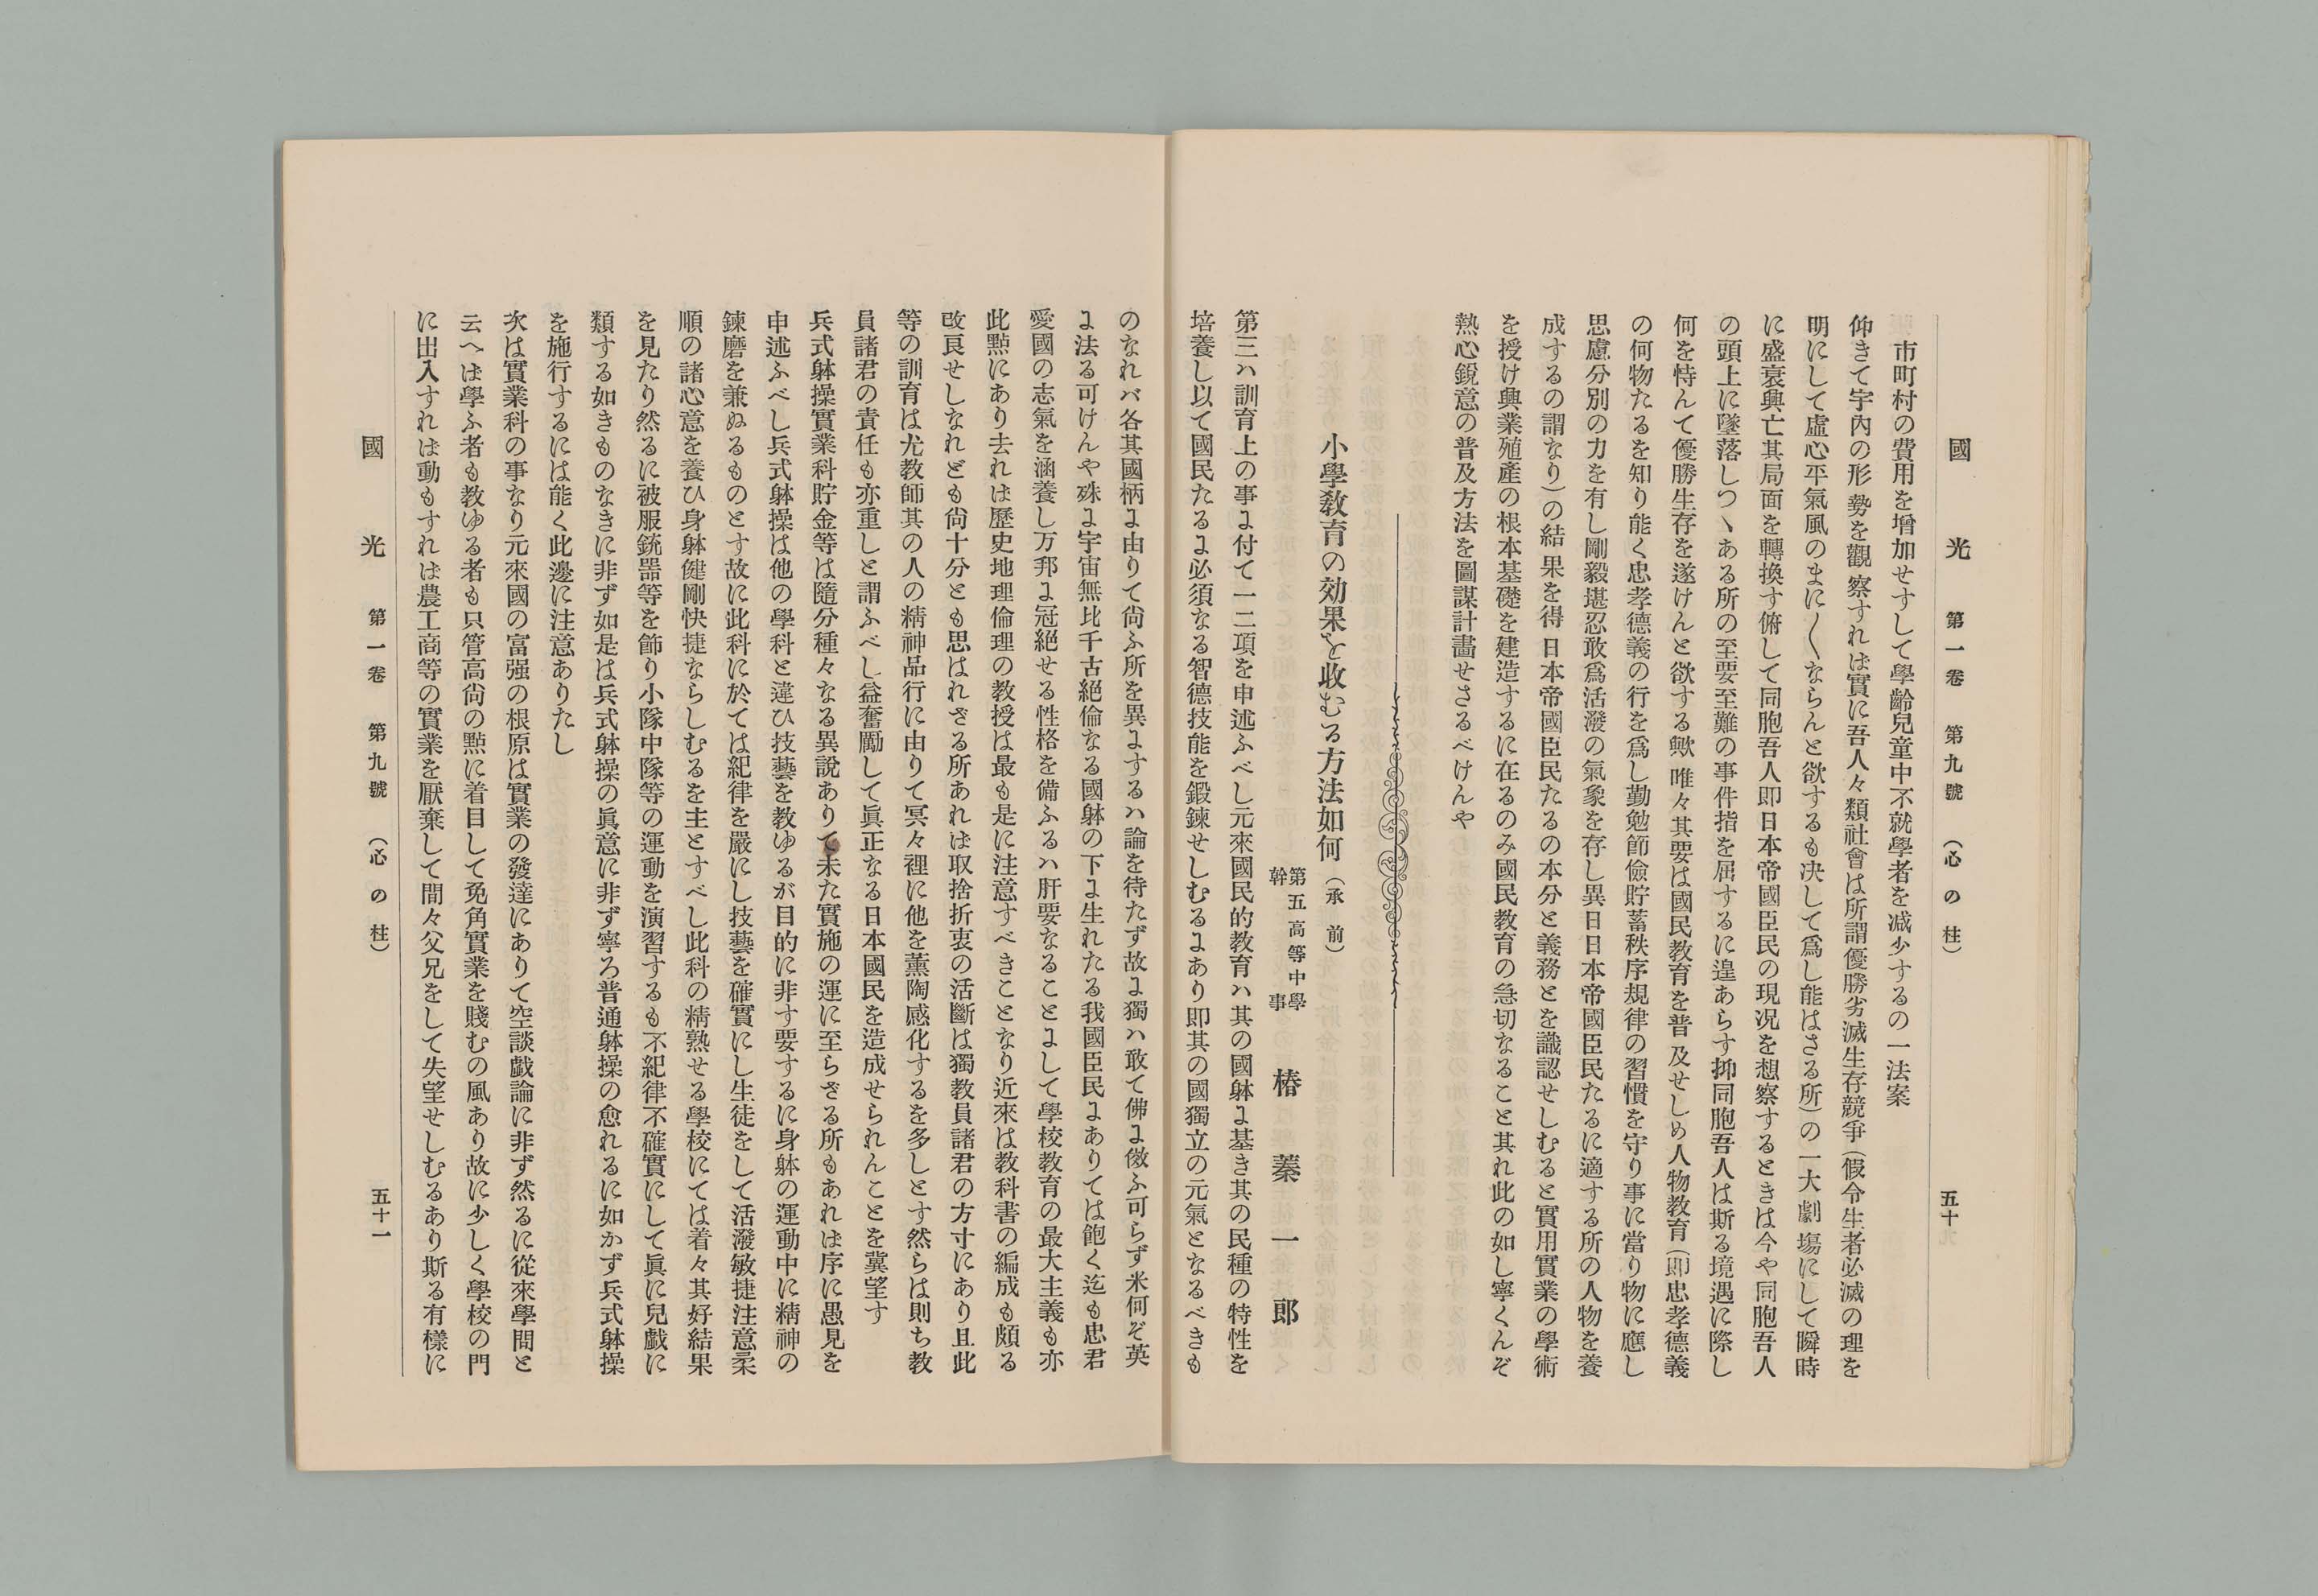 國光 第一卷 第九號 (心の柱) 五十
市町村の費用を增加せすして學齡兒童中不就學者を減少するの一法案
仰きて宇內の形勢を觀察すれは實に吾人々類社會は所謂優勝劣滅生存競爭(假令生者必滅の理を
明にして虛心平氣風のまに〱ならんと欲するも決して爲し能はさる所)の一大劇塲にして瞬時
に盛衰興亡其局面を轉換す俯して同胞吾人卽日本帝國臣民の現況を想察するときは今や同胞吾人
の頭上に墜落しつヽある所の至要至難の事件指を屈するに遑あらす抑同胞吾人は斯る境遇に際し
何を恃んて優勝生存を遂けんと欲する歟唯々其要は國民敎育を普及せしめ人物敎育(卽忠孝德義
の何物たるを知り能く忠孝德義の行を爲し勤勉節儉貯蓄秩序規律の習慣を守り事に當り物に應し
思慮分別の力を有し剛毅堪忍敢爲活潑の氣象を存し異日日本帝國臣民たるに適する所の人物を養
成するの謂なり)の結果を得日本帝國臣民たるの本分と義務とを識認せしむると實用實業の學術
を授け興業殖產の根本基礎を建造するに在るのみ國民敎育の急切なること其れ此の如し寧くんぞ
熱心銳意の普及方法を圖謀計畵せさるべけんや
小學敎育の効果を收むる方法如何(承前)
第五高等中學幹事 椿蓁一郞
第三ハ訓育上の事ょ付て一二項を申述ふべし元來國民的敎育ハ其の國躰ょ基き其の民種の特性を
培養し以て國民たるょ必須なる智德技能を鍛鍊せしむるょあり卽其の國獨立の元氣となるべきも
のなれバ各其國柄ょ由りて尙ふ所を異ょするハ論を待たず故ょ獨ハ敢て佛ょ傚ふ可らず米何ぞ英
ょ法る可けんや殊ょ宇宙無比千古絕倫なる國躰の下ょ生れたる我國臣民ょありては飽く迄も忠君
愛國の志氣を涵養し万邦ょ冠絕せる性格を備ふるハ肝要なることょして學校敎育の最大主義も亦
此㸃にあり去れは歷史地理倫理の敎授は最も是に注意すべきことなり近來は敎科書の編成も頗る
改良せしなれども尙十分とも思はれざる所あれは取捨折衷の活斷は獨敎員諸君の方寸にあり且此
等の訓育は尤敎師其の人の精神品行に由りて冥々裡に他を薰陶感化するを多しとす然らは則ち敎
員諸君の責任も亦重しと謂ふべし益奮勵して眞正なる日本國民を造成せられんことを冀望す
兵式躰操實業科貯金等は隨分種々なる異說ありて未た實施の運に至らざる所もあれは序に愚見を
申述ふべし兵式躰操は他の學科と違ひ技藝を敎ゆるが目的に非す要するに身躰の運動中に精神の
鍊磨を兼ぬるものとす故に此科に於ては紀律を嚴にし技藝を確實にし生徒をして活潑敏捷注意柔
順の諸心意を養ひ身躰健剛快捷ならしむるを主とすべし此科の精熟せる學校にては着々其好結果
を見たり然るに被服銃噐等を飾り小隊中隊等の運動を演習するも不紀律不確實にして眞に兒戯に
類する如きものなきに非ず如是は兵式躰操の眞意に非ず寧ろ普通躰操の愈れるに如かず兵式躰操
を施行するには能く此邊に注意ありたし
次は實業科の事なり元來國の富强の根原は實業の發達にありて空談戯論に非ず然るに從來學問と
云へは學ふ者も敎ゆる者も只管高尙の㸃に着目して兎角實業を賤むの風あり故に少しく學校の門
に出入すれは動もすれは農工商等の實業を厭棄して間々父兄をして失望せしむるあり斯る有樣に
國光 第一卷 第九號 (心の柱) 五十一